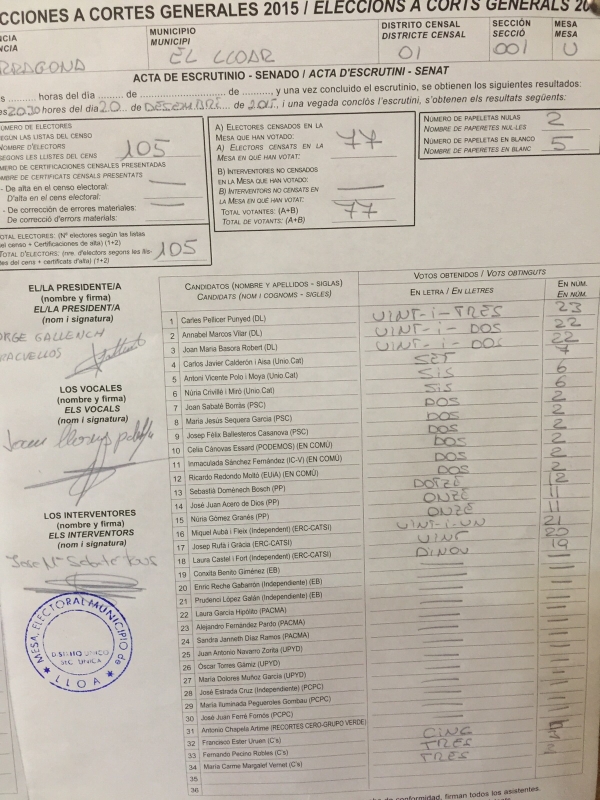 CCIONES A CORTES GENERALES 2015 / ELECCIONS A CORTS GENERALS 20
NCIA
NCIA
RRAGONA
MUNICIPIO
MUNICIPI
EL LLOAR
DISTRITO CENSAL
DISTRICTE CENSAL
01
SECCIÓN
SECCIÓ
001
MESA
MESA
U
ACTA DE ESCRUTINIO - SENADO / ACTA D'ESCRUTINI - SENAT
s ......... horas del día ......... de ............... de ........., y una vez concluido el escrutinio, se obtienen los siguientes resultados:
es 2030 hores del dia 20 de DESEMBRE de 2015, i una vegada conclòs l'escrutini, s'obtenen els resultats següents:
NÚMERO DE ELECTORES
SEGÚN LAS LISTAS DEL CENSO
NOMBRE D'ELECTORS
SEGONS LES LLISTES DEL CENS 105
MERO DE CERTIFICACIONES CENSALES PRESENTADAS
MBRE DE CERTIFICATS CENSALS PRESENTATS
- De alta en el censo electoral:
D'alta en el cens electoral:
- De corrección de errores materiales:
De correcció d'errors materials:
TOTAL ELECTORES: (Nº electores según las listas
el censo + Certificaciones de alta) (1+2)
TOTAL D'ELECTORS: (nre. d'electors segons les llis-
tes del cens + certificats d'alta) (1+2) 105
A) ELECTORES CENSADOS EN LA
MESA QUE HAN VOTADO:
A) ELECTORS CENSATS EN LA
MESA EN QUÈ HAN VOTAT: 77
B) INTERVENTORES NO CENSADOS
EN LA MESA QUE HAN VOTADO:
B) INTERVENTORS NO CENSATS EN
LA MESA EN QUÈ HAN VOTAT:
TOTAL VOTANTES: (A+B)
TOTAL DE VOTANTS: (A+B) 77
NÚMERO DE PAPELETAS NULAS
NOMBRE DE PAPERETES NUL·LES 2
NÚMERO DE PAPELETAS EN BLANCO
NOMBRE DE PAPERETES EN BLANC 5
EL/LA PRESIDENTE/A
(nombre y firma)
EL/LA PRESIDENT/A
(nom i signatura)
LOS VOCALES
(nombre y firma)
ELS VOCALS
(nom i signatura)
LOS INTERVENTORES
(nombre y firma)
ELS INTERVENTORS
(nom i signatura)
MESA ELECTORAL MUNICIPIO de
LLOA
DISTRITO UNICO
SEC. UNICA
CANDIDATOS (NOMBRE Y APELLIDOS - SIGLAS)
CANDIDATS (NOM I COGNOMS - SIGLES)
VOTOS OBTENIDOS / VOTS OBTINGUTS
EN LETRA / EN LLETRES
EN NÚM.
EN NÚM.
1 Carles Pellicer Punyed (DL) VINT-I-TRES 23
2 Annabel Marcos Vilar (DL) VINT-I-DOS 22
3 Joan Maria Basora Robert (DL) VINT-I-DOS 22
4 Carlos Javier Calderón i Aisa (Unio Cat) SET 7
5 Antoni Vicente Polo i Moya (Unio Cat) SIS 6
6 Núria Crivillé i Miró (Unio Cat) SIS 6
7 Joan Sabaté Borràs (PSC) DOS 2
8 Maria Jesús Sequera Garcia (PSC) DOS 2
9 Josep Fèlix Ballesteros Casanova (PSC) DOS 2
10 Celia Cánovas Essard (PODEMOS) (EN COMÚ) DOS 2
11 Inmaculada Sánchez Fernández (IC-V) (EN COMÚ) DOS 2
12 Ricardo Redondo Moltó (EUiA) (EN COMÚ) DOS 2
13 Sebastià Domènech Bosch (PP) DOTZE 12
14 José Juan Acero de Dios (PP) ONZE 11
15 Núria Gómez Granés (PP) ONZE 11
16 Miquel Aubà i Fleix (Independent) (ERC-CATSI) VINT-I-UN 21
17 Josep Rufà i Gràcia (ERC-CATSI) VINT 20
18 Laura Castel i Fort (Independent) (ERC-CATSI) DINOU 19
19 Conxita Benito Giménez (EB)
20 Enric Reche Gabarrón (Independiente) (EB)
21 Prudenci López Galán (Independiente) (EB)
22 Laura Garcia Hipólito (PACMA)
23 Alejandro Fernández Pardo (PACMA)
24 Sandra Janneth Díaz Ramos (PACMA)
25 Juan Antonio Navarro Zorita (UPYD)
26 Óscar Torres Gámiz (UPYD)
27 Maria Dolores Muñoz García (UPYD)
28 José Estrada Cruz (Independiente) (PCPC)
29 Maria Iluminada Pegueroles Gombau (PCPC)
30 José Juan Ferré Fornós (PCPC)
31 Antonio Chapela Artime (RECORTES CERO-GRUPO VERDE)
32 Francisco Ester Uruen (C's) CINC 5
33 Fernando Pecino Rubles (C's) TRES 3
34 Maria Carme Margalef Vernet (C's) TRES
35
36
de conformidad, firman todos los asistentes.